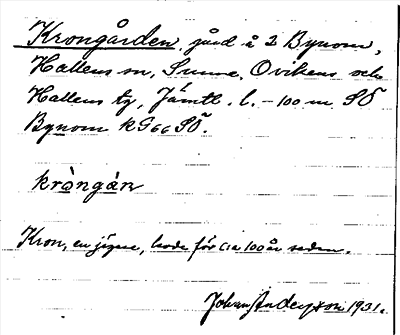 Krongården, gård å 2 Bynom,
Hallens sn, Sunne, Ovikens och
Hallens tg, Jämtl. l. – 100 m SÖ
Bynom kG66SÖ.
kròngán
Kron, en jägare, bodde för c:a 100 år sedan.
Johan Anderzon 1931.